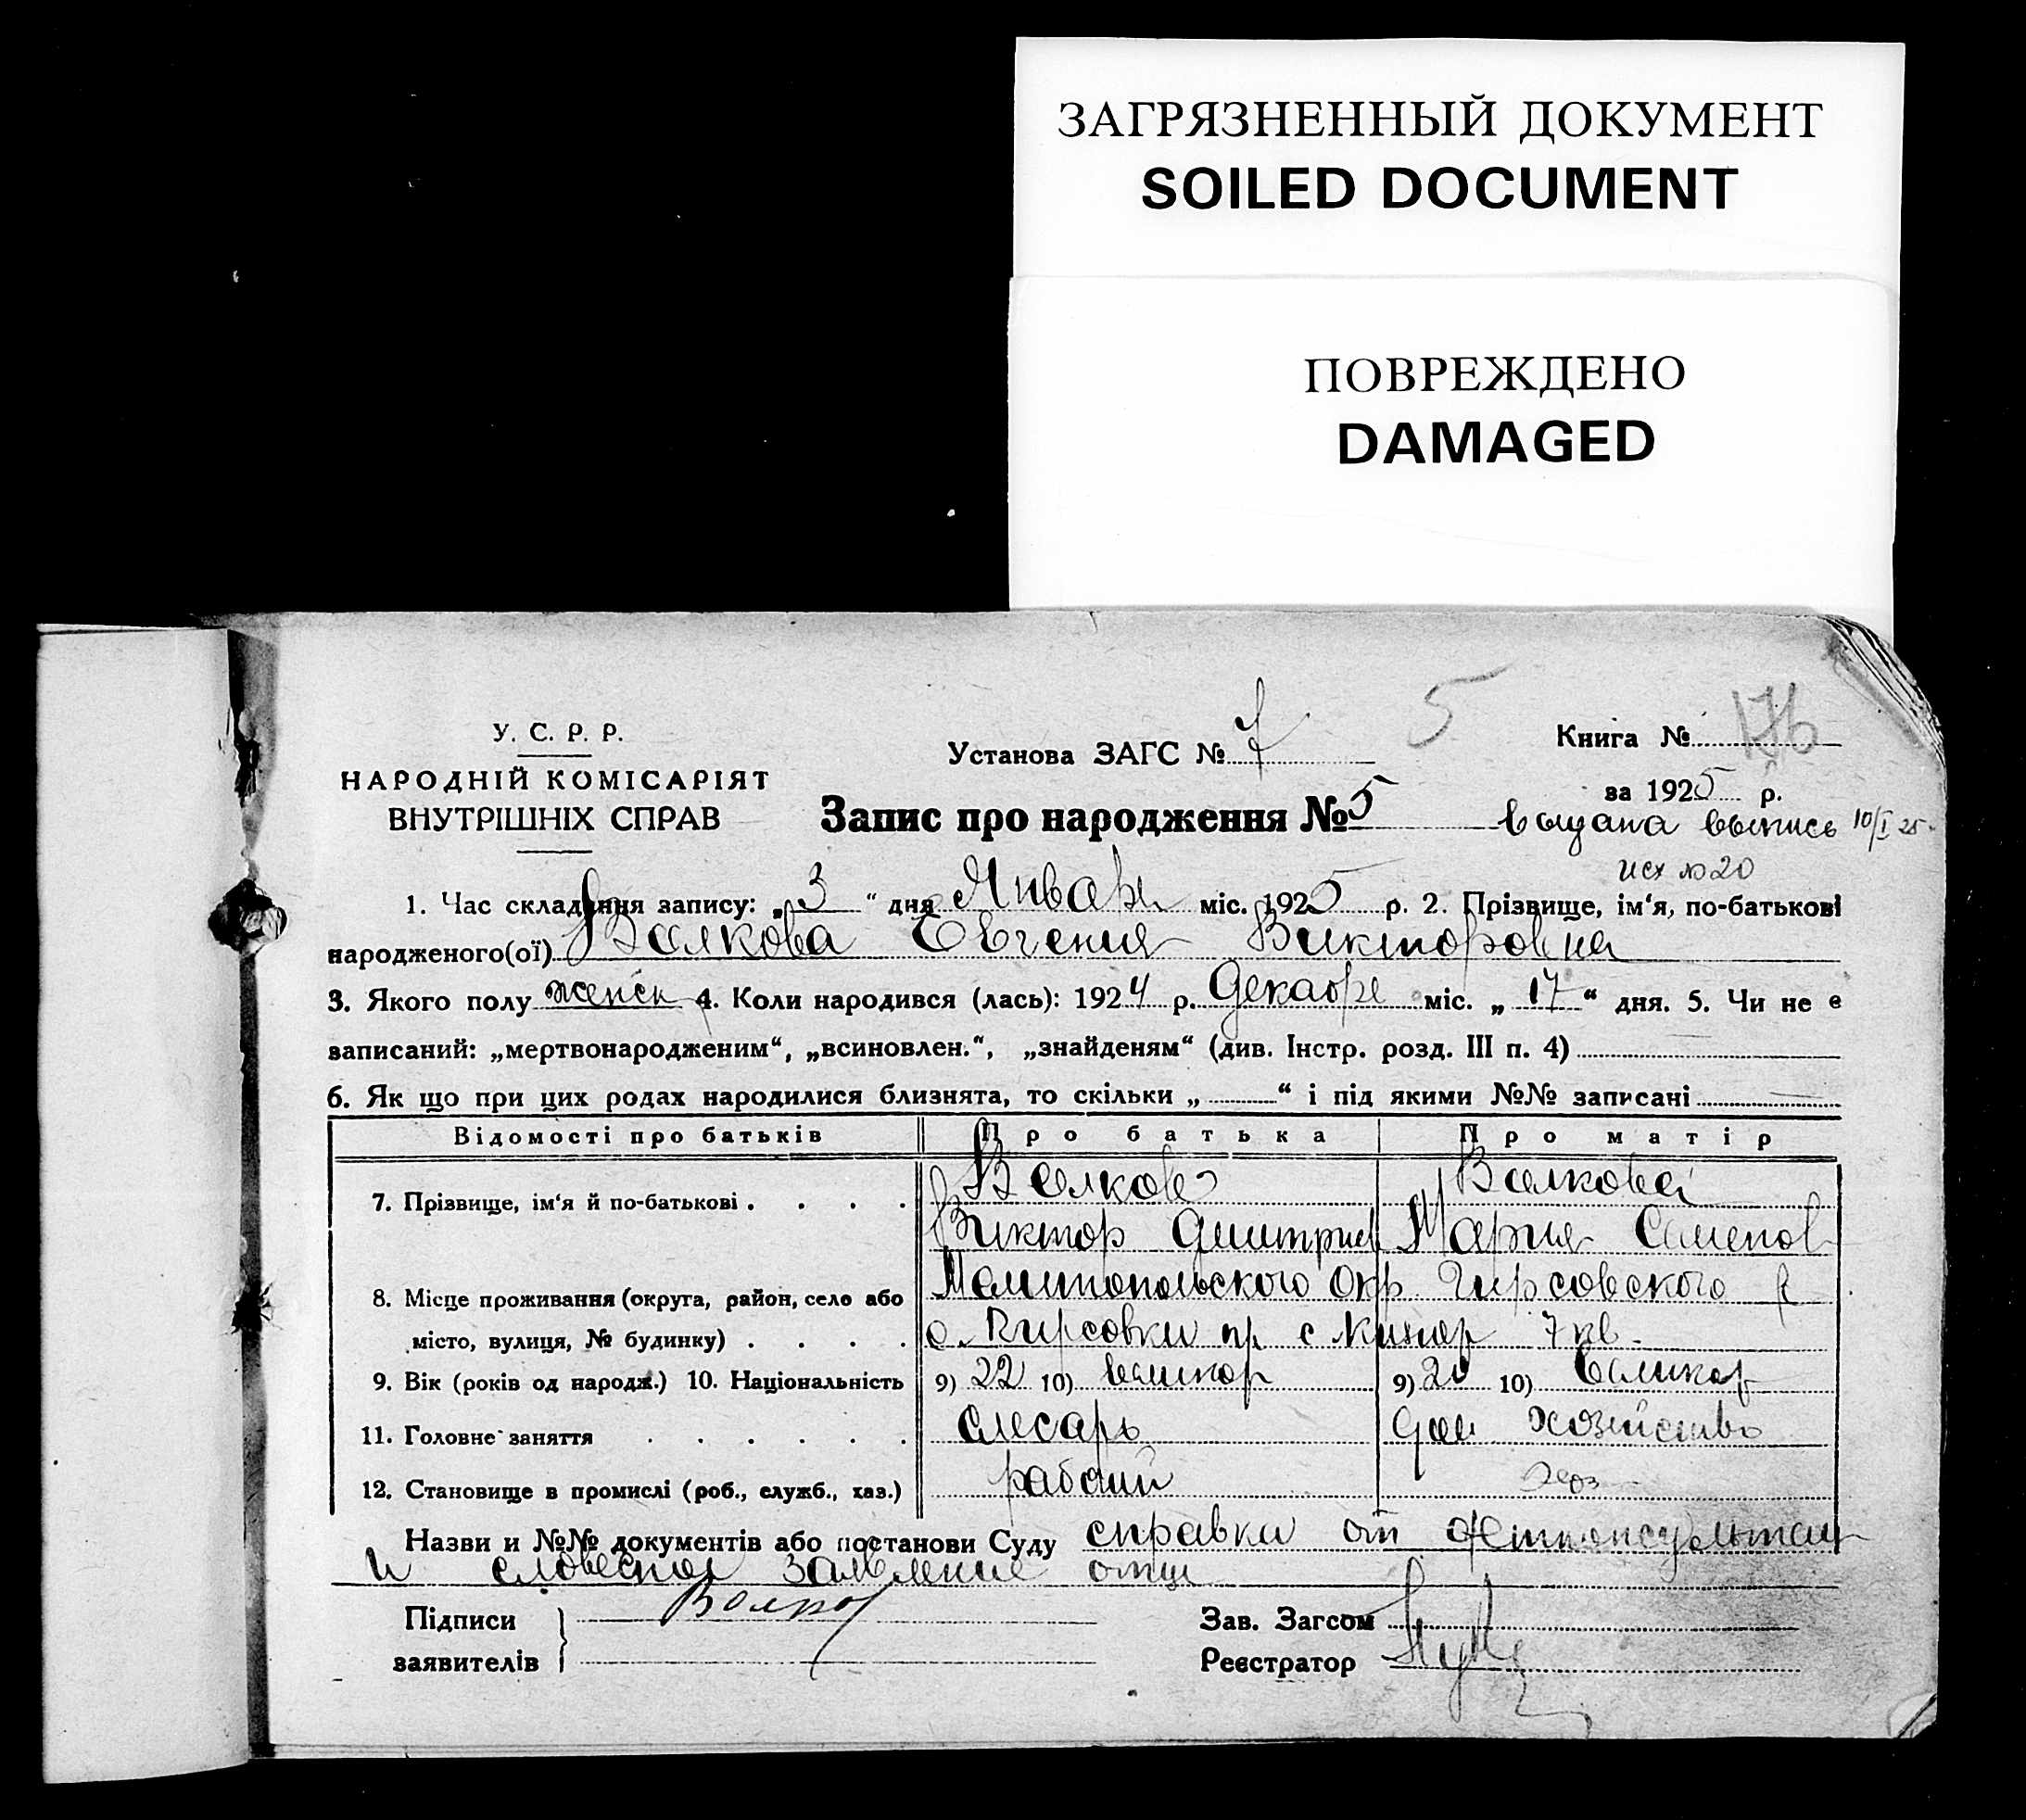 ЗАГРЯЗНЕННЫЙ ДОКУМЕНТ
SOILED DOCUMENT
ПОВРЕЖДЕНО
DAMAGED
У. С. Р. Р.
НАРОДНІЙ КОМІСАРІЯТ
ВНУТРІШНІХ СПРАВ
Установа ЗАГС № 7
5
Книга № 176
за 1925 р.
Запис про народження № 5
выдана выпись 10/I 25
исх №20
1. Час складання запису: „3“ дня Января міс. 1925 р. 2. Прізвище, ім‘я, по-батькові
народженого(ої) Валкова Евгения Викторовна
3. Якого полу женск 4. Коли народився (лась): 1924 р. Декабре міс. „17“ дня. 5. Чи не є
записаний: „мертвонародженим“, „всиновлен.“, „знайденям“ (див. Інстр. розд. III п. 4)
6. Як що при цих родах народилися близнята, то скільки „ “ і під якими №№ записані
Відомості про батьків Про батька Про матір
7. Прізвище, ім‘я й по-батькові Валков Валкова
Виктор Дмитриев Мария Семенов
8. Місце проживання (округа, район, село або Мелитопольского Окр Кирсовского р
місто, вулиця, № будинку) с. Кирсовки пр 7 кв.
9. Вік (років од народж.) 10. Національність 9) 22 10) великор 9) 20 10) великор
11. Головне заняття слесарь дом хозяйство
12. Становище в промислі (роб., служб., хаз.) рабочий хоз
Назви и №№ документів або постанови Суду справка от детконсультац
и словесное заявление отца
Підписи Валков
заявителів
Зав. Загсом
Реєстратор